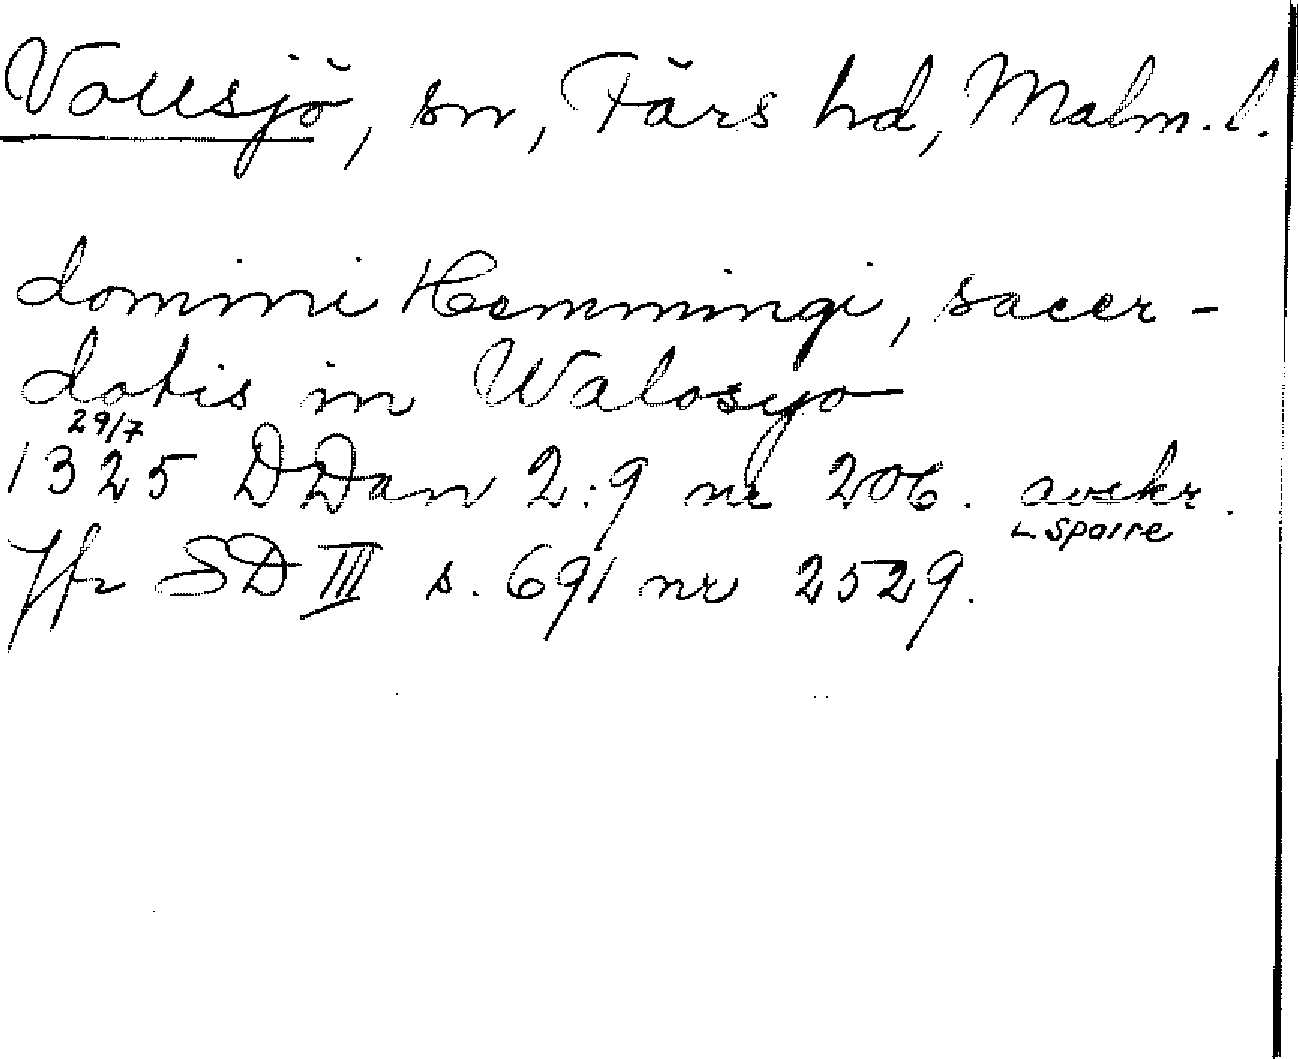 Vollsjö, sn, Färs hd, Malm. l.
domini Hemmingi, sacer-
dotis in Walosyo
29/7
1325 DDan 2:9 nr 206. avskr.
L Sparre
Jfr SD III s. 691 nr 2529.